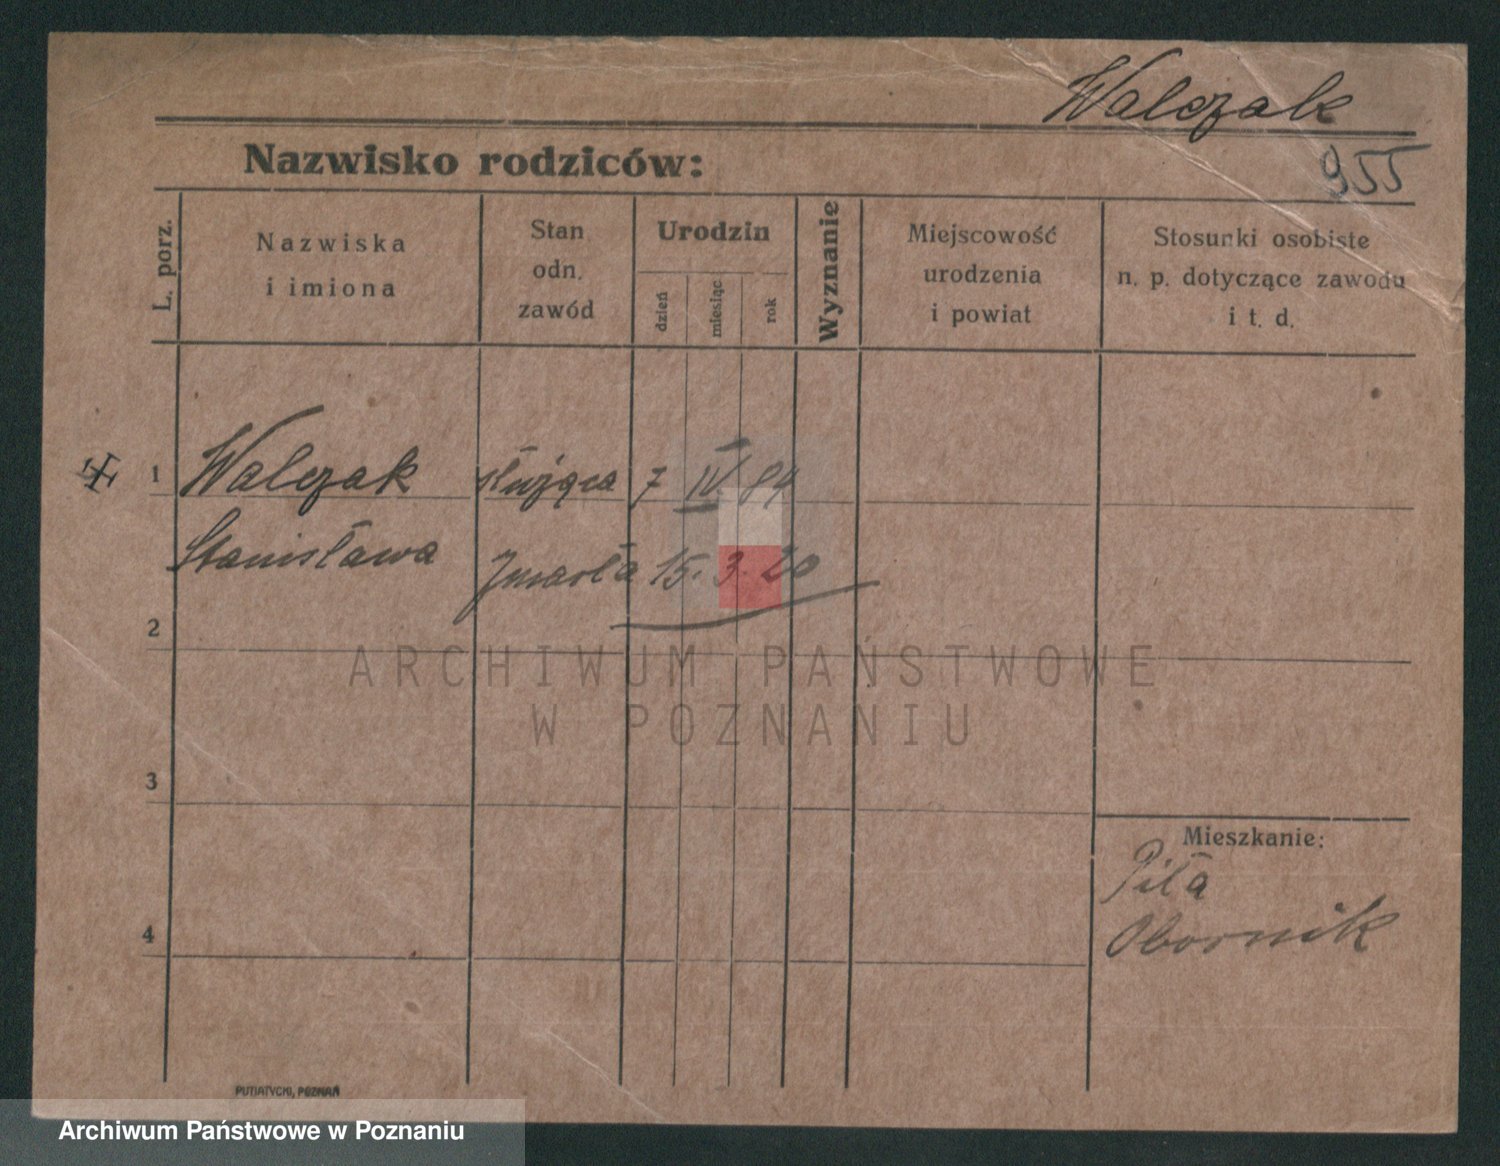 Walczak
Nazwisko rodziców:
955
L. porz.
Nazwiska
i imiona
Stan
odn.
zawód
Urodzin
dzień
miesiąc
rok
Wyznanie
Miejscowość
urodzenia
i powiat
Stosunki osobiste
n. p. dotyczące zawodu
i t. d.
1 Walczak służąca 7 IV 84
Stanisława Zmarła 15. 3. 20
2
ARCHIWUM PAŃSTWOWE
W POZNANIU
3
Mieszkanie:
Piła
Obornik
4
PUTIATYCKI, POZNAŃ
Archiwum Państwowe w Poznaniu